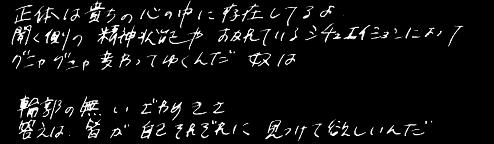 正体は貴方の心の中に存在してるよ
聞く側の精神状態や おかれているシチュエイションによって
グニャグニャ変わってゆくんだ 奴は
輪郭の無いざわめきさ
答えは 皆が自己それぞれに 見つけて欲しいんだ